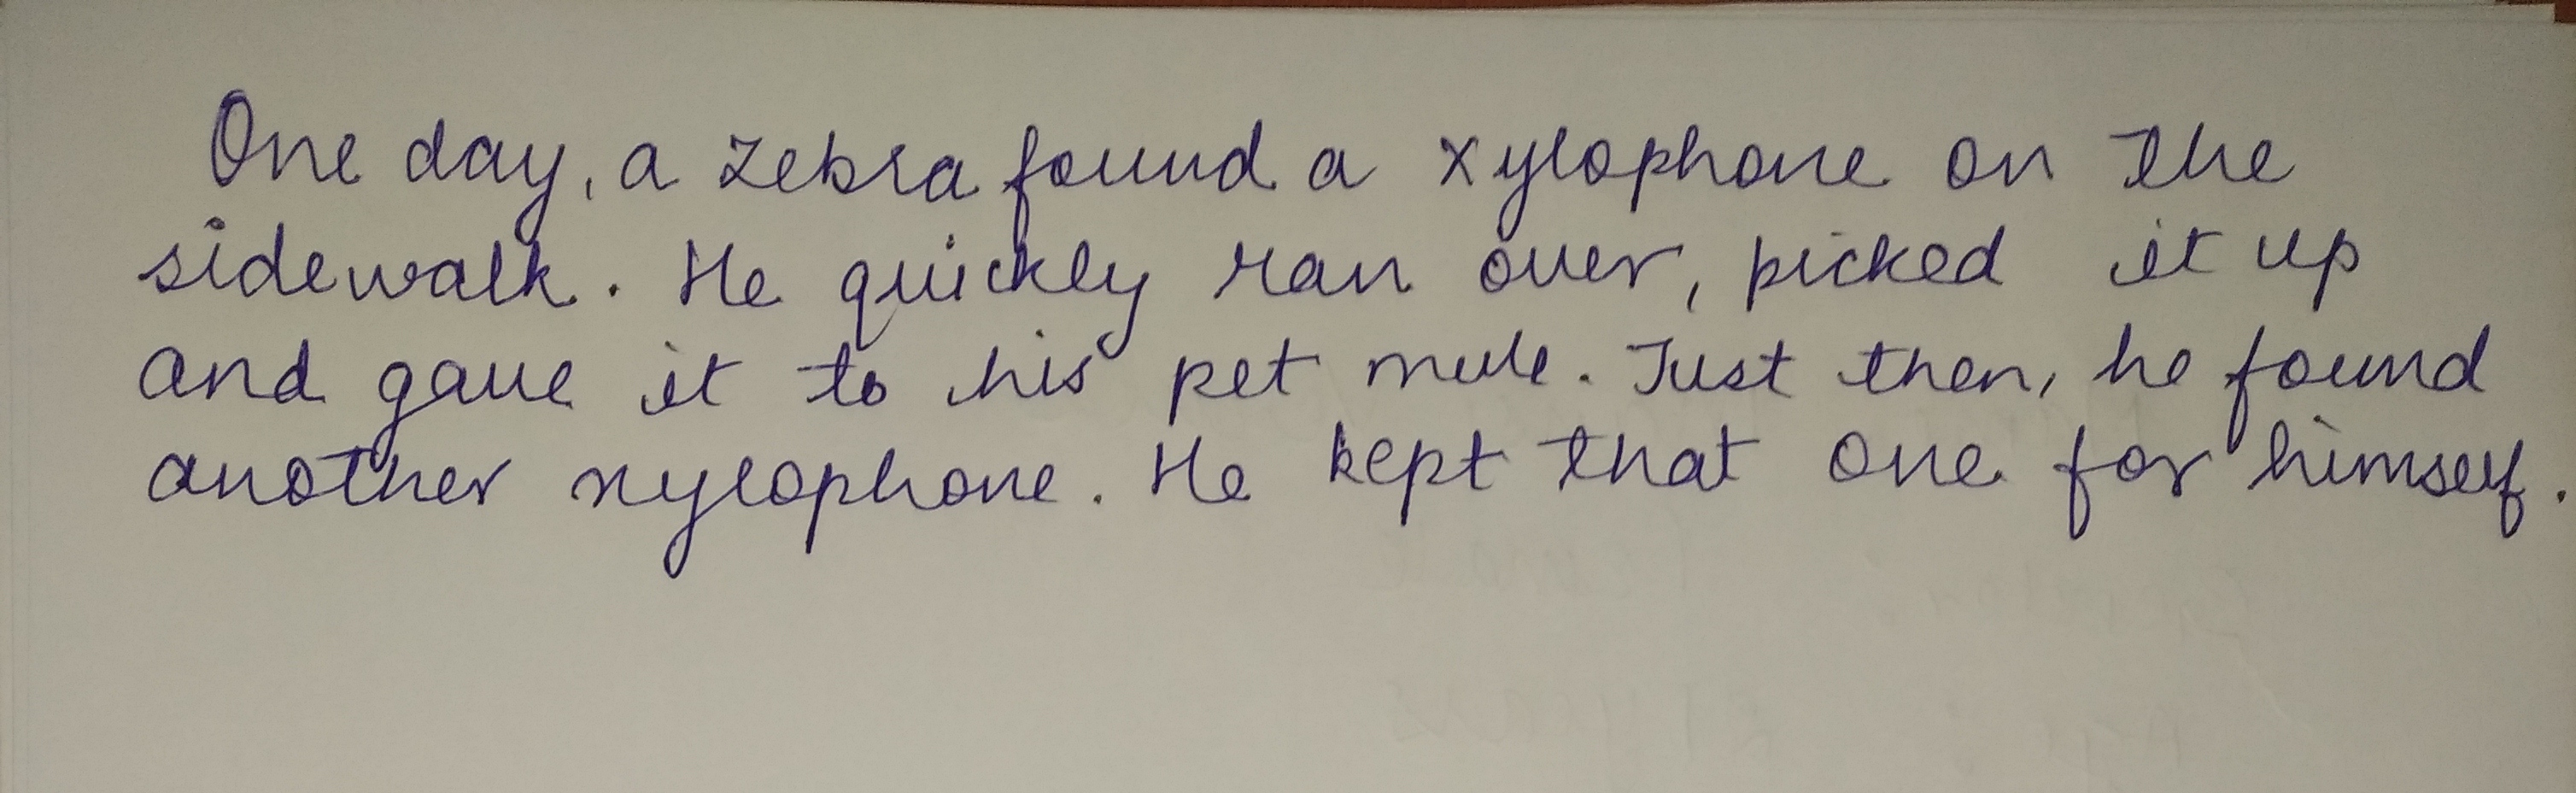 One day, a zebra found a xylophone on the
sidewalk. He quickly ran over, picked it up
and gave it to his pet mule. Just then, he found
another xylophone. He kept that one for himself.